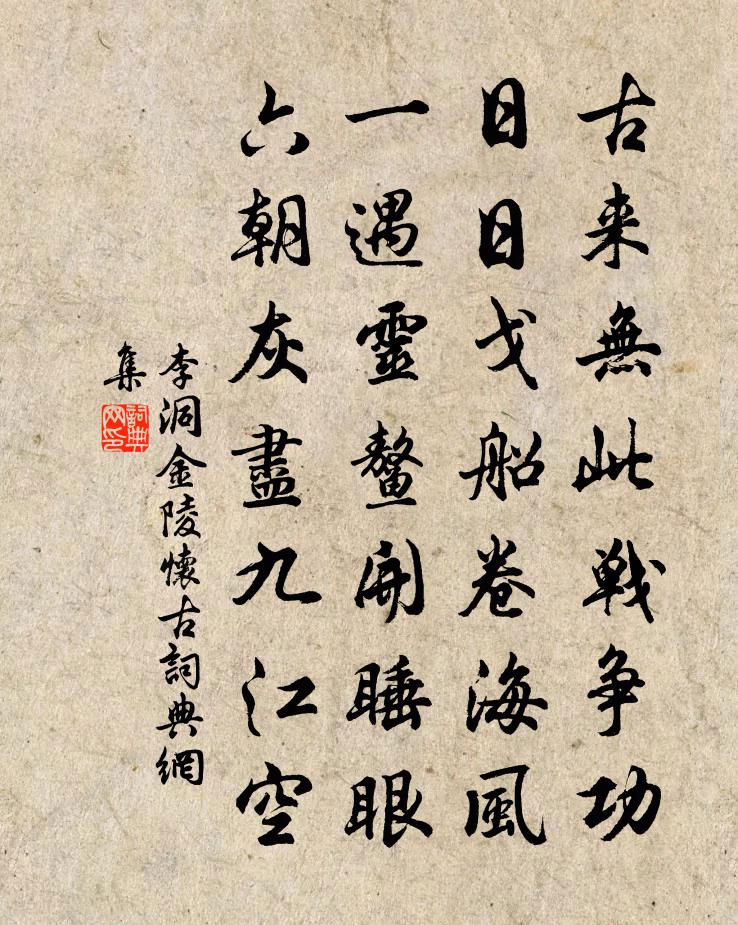 古来無此戰争功
日日戈船卷海風
一遇靈鼇開睡眼
六朝灰盡九江空
李洞金陵懷古詞典網
集
詞典網印